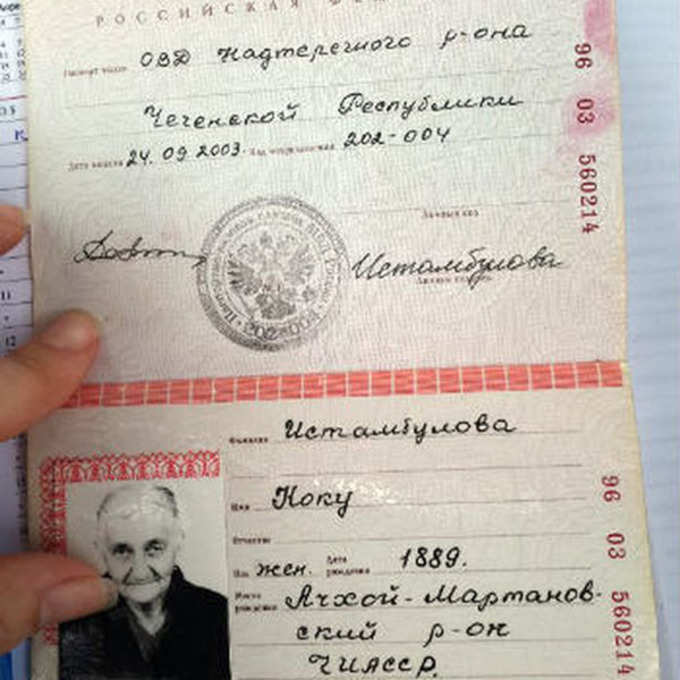 РОССИЙСКАЯ
Паспорт выдан ОВД Надтеречного р-она
Чеченской Республики
Дата выдачи 24.09.2003. Код подразделения 202-004
Личный код
Истамбулова
Личная подпись
96 03 560214
Фамилия Истамбулова
Имя Коку
Отчество
Пол жен. Дата рождения 1889.
Место рождения Ачхой-Мартанов-
ский р-он
ЧИАССР.
96 03 560214